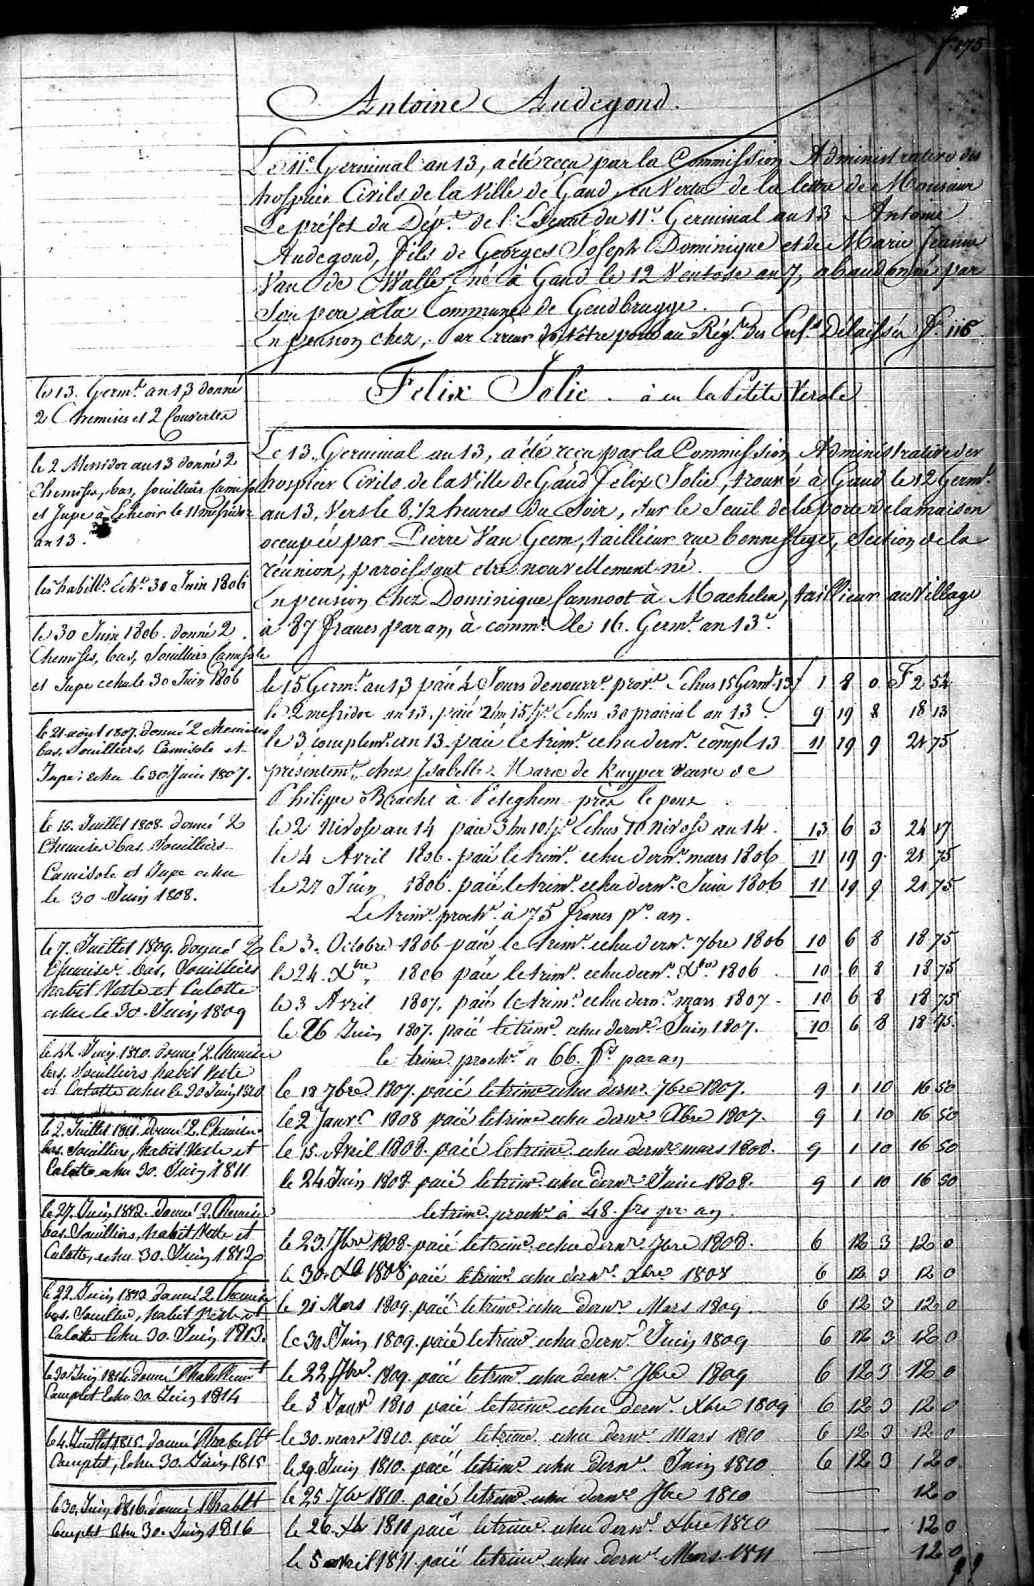 f° 175
Antoine Audegond.
Le 11e Germinal an 13, a été reçu par la Commission Administrative des
hospices Civils de la Ville de Gand en Vertu de la lettre de Monsieur
Le préfet du Dept. de l'Escaut du 11e Germinal an 13 Antoine
Audegond, fils de Georges Joseph Dominique et de Marie Jeanne
Van de Walle, né à Gand le 12 Ventose an 7, abandonné par
Son pere à la Commune de Gendbrugge.
En pension chez, Par Erreur doit être porté au Rég.e des Enf.s Délaissés f° 116
Felix Jolie. à eu la Petite Verole
Le 13 Germinal an 13, a été reçu par la Commission Administrative des
hospices Civils de la Ville de Gand Felix Jolie, trouvé à Gand le 12 Germ.l
an 13, Vers le 8 1/2 heures du Soir, sur le Seuil de la porte de la maison
occupée par Pierre Van Geem, taillieur rue bonnestege, Section de la
réunion, paroissant etre nouvellement né.
En pension Chez Dominique Cannoot à Machelen, taillieur au Village
à 87 francs par an, à comm.r le 16. Germ.l an 13e.
le 13. Germ.l an 13 donné
2 Chemises et 2 Couvertes
le 2 Messidor an 13 donné 2
Chemises, bas, souilliers Camisole
et Jupe à Echeoir le 11 messidor
an 13.
les habill.s Ech.s 30 Juin 1806
le 30 Juin 1806. donné 2
Chemises, bas, Souilliers Camisole
et Jupe echu le 30 Juin 1806
le 21 août 1807. donné 2 Chemises
bas, Souilliers, Camisole et
Jupe echu le 30 Juin 1807.
le 15. Juillet 1808. donné 2
Chemises bas. Souilliers
Camisole et Jupe echu
le 30 Juin 1808.
le 7. Juillet 1809. donné 2
Chemises. bas, Souilliers
habit Veste et Culotte
echu le 30. Juin 1809
le 12. Juin 1810. donné 2. Chemises
bas. Souilliers habit Veste
et Culotte echu le 30 Juin 1810
le 2. Juillet 1811. donné 2. Chemises
bas. Souilliers, habit Veste et
Culotte echu 30. Juin 1811
le 27. Juin 1812. donné 2. Chemises
bas. Souilliers, habit Veste et
Culotte, echu 30. Juin 1812
le 22. Juin 1813 donné 2. Chemises
bas. Souilliers, habit Veste et
Culotte Echu 30. Juin 1813.
le 30 Juin 1814. donné l'habillement
Complet Echu 30 Juin 1814
le 4. Juillet 1815. donné l'habillt
Complet, Echu 30. Juin 1815
le 30. Juin 1816. donné l'habillt
Complet echu 30. Juin 1816
le 15 Germ.l an 13 paié 4 Jours de nourr.e prov.e Echus 15 Germ.l 13 1 8 0 F 2 54
le 2 messidor an 13. paié 2 m 15 j.s Echus 30 prairial an 13 9 19 8 18 13
le 3 complem.e an 13. paié le trim.e echu dern.r compl 13 11 19 9 21 75
présentem.t chez Isabelle Marie de Kuyper veuve de
Philippe Bracht à Peteghem près le pont
le 2 Nivose an 14 paié 3 m 10 j.s Echus 10 Nivose an 14. 13 6 3 24 17
le 4 Avril 1806. paié le trim.e echu dern.r mars 1806 11 19 9 21 75
le 27 Juin 1806. paié le trim.e echu dern.r Juin 1806 11 19 9 21 75
Le trim.e proch.n à 75 francs p.r an.
le 3. Octobre 1806 paié le trim.e echu dern.r 7bre 1806 10 6 8 18 75
le 24. Xbre 1806 paié le trim.e echu dern.r Xbre 1806 10 6 8 18 75
le 3 Avril 1807. paié le trim.e echu dern.r mars 1807 10 6 8 18 75
le 26 Juin 1807. paié le trim.e echu dern.r Juin 1807. 10 6 8 18 75
le trime. proch.n a 66. f.s par an
le 18 7bre 1807. paié le trime echu dern.r 7bre 1807. 9 1 10 16 50
le 2 Janv.r 1808 paié le trime echu dern.r Xbre 1807. 9 1 10 16 50
le 15. Avril 1808. paié le trime. echu dern.r mars 1808. 9 1 10 16 50
le 24 Juin 1808 paié le trim.e echu dern.r Juin 1808. 9 1 10 16 50
le trim.e proch.n à 48. frs pr. an.
le 23. 7bre 1808. paié le trime. echu dern.r 7bre 1808. 6 12 3 12 0
le 30. Xb 1808 paié le trim.e echu dern.r Xbre 1808 6 12 3 12 0
le 21 Mars 1809. paié le trim.e echu dern.r Mars 1809. 6 12 3 12 0
le 30. Juin 1809. paié le trim.e echu dern.r Juin 1809 6 12 3 12 0
le 22 7br.e 1809. paié le trim.e echu dern.r 7bre 1809 6 12 3 12 0
le 5 Janv.r 1810 paié le trim.e echu dern.r Xbre 1809 6 12 3 12 0
le 30. mars 1810. paié le trime. echu dern.r Mars 1810 6 12 3 12 0
le 29. Juin 1810. paié le trim.e echu dern.r Juin 1810 6 12 3 12 0
le 25 7br 1810. paié le trim.e echu dern.r 7bre 1810 12 0
le 26. Xb 1810 paié le trim.e echu dern.r Xbre 1810 12 0
le 5 avril 1811. paié le trim.e echu dern.r Mars 1811 12 0